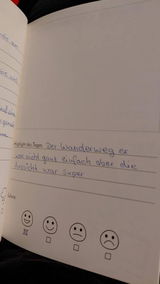 Der Wanderweg er
war nicht ganz einfach aber die
Aussicht war super